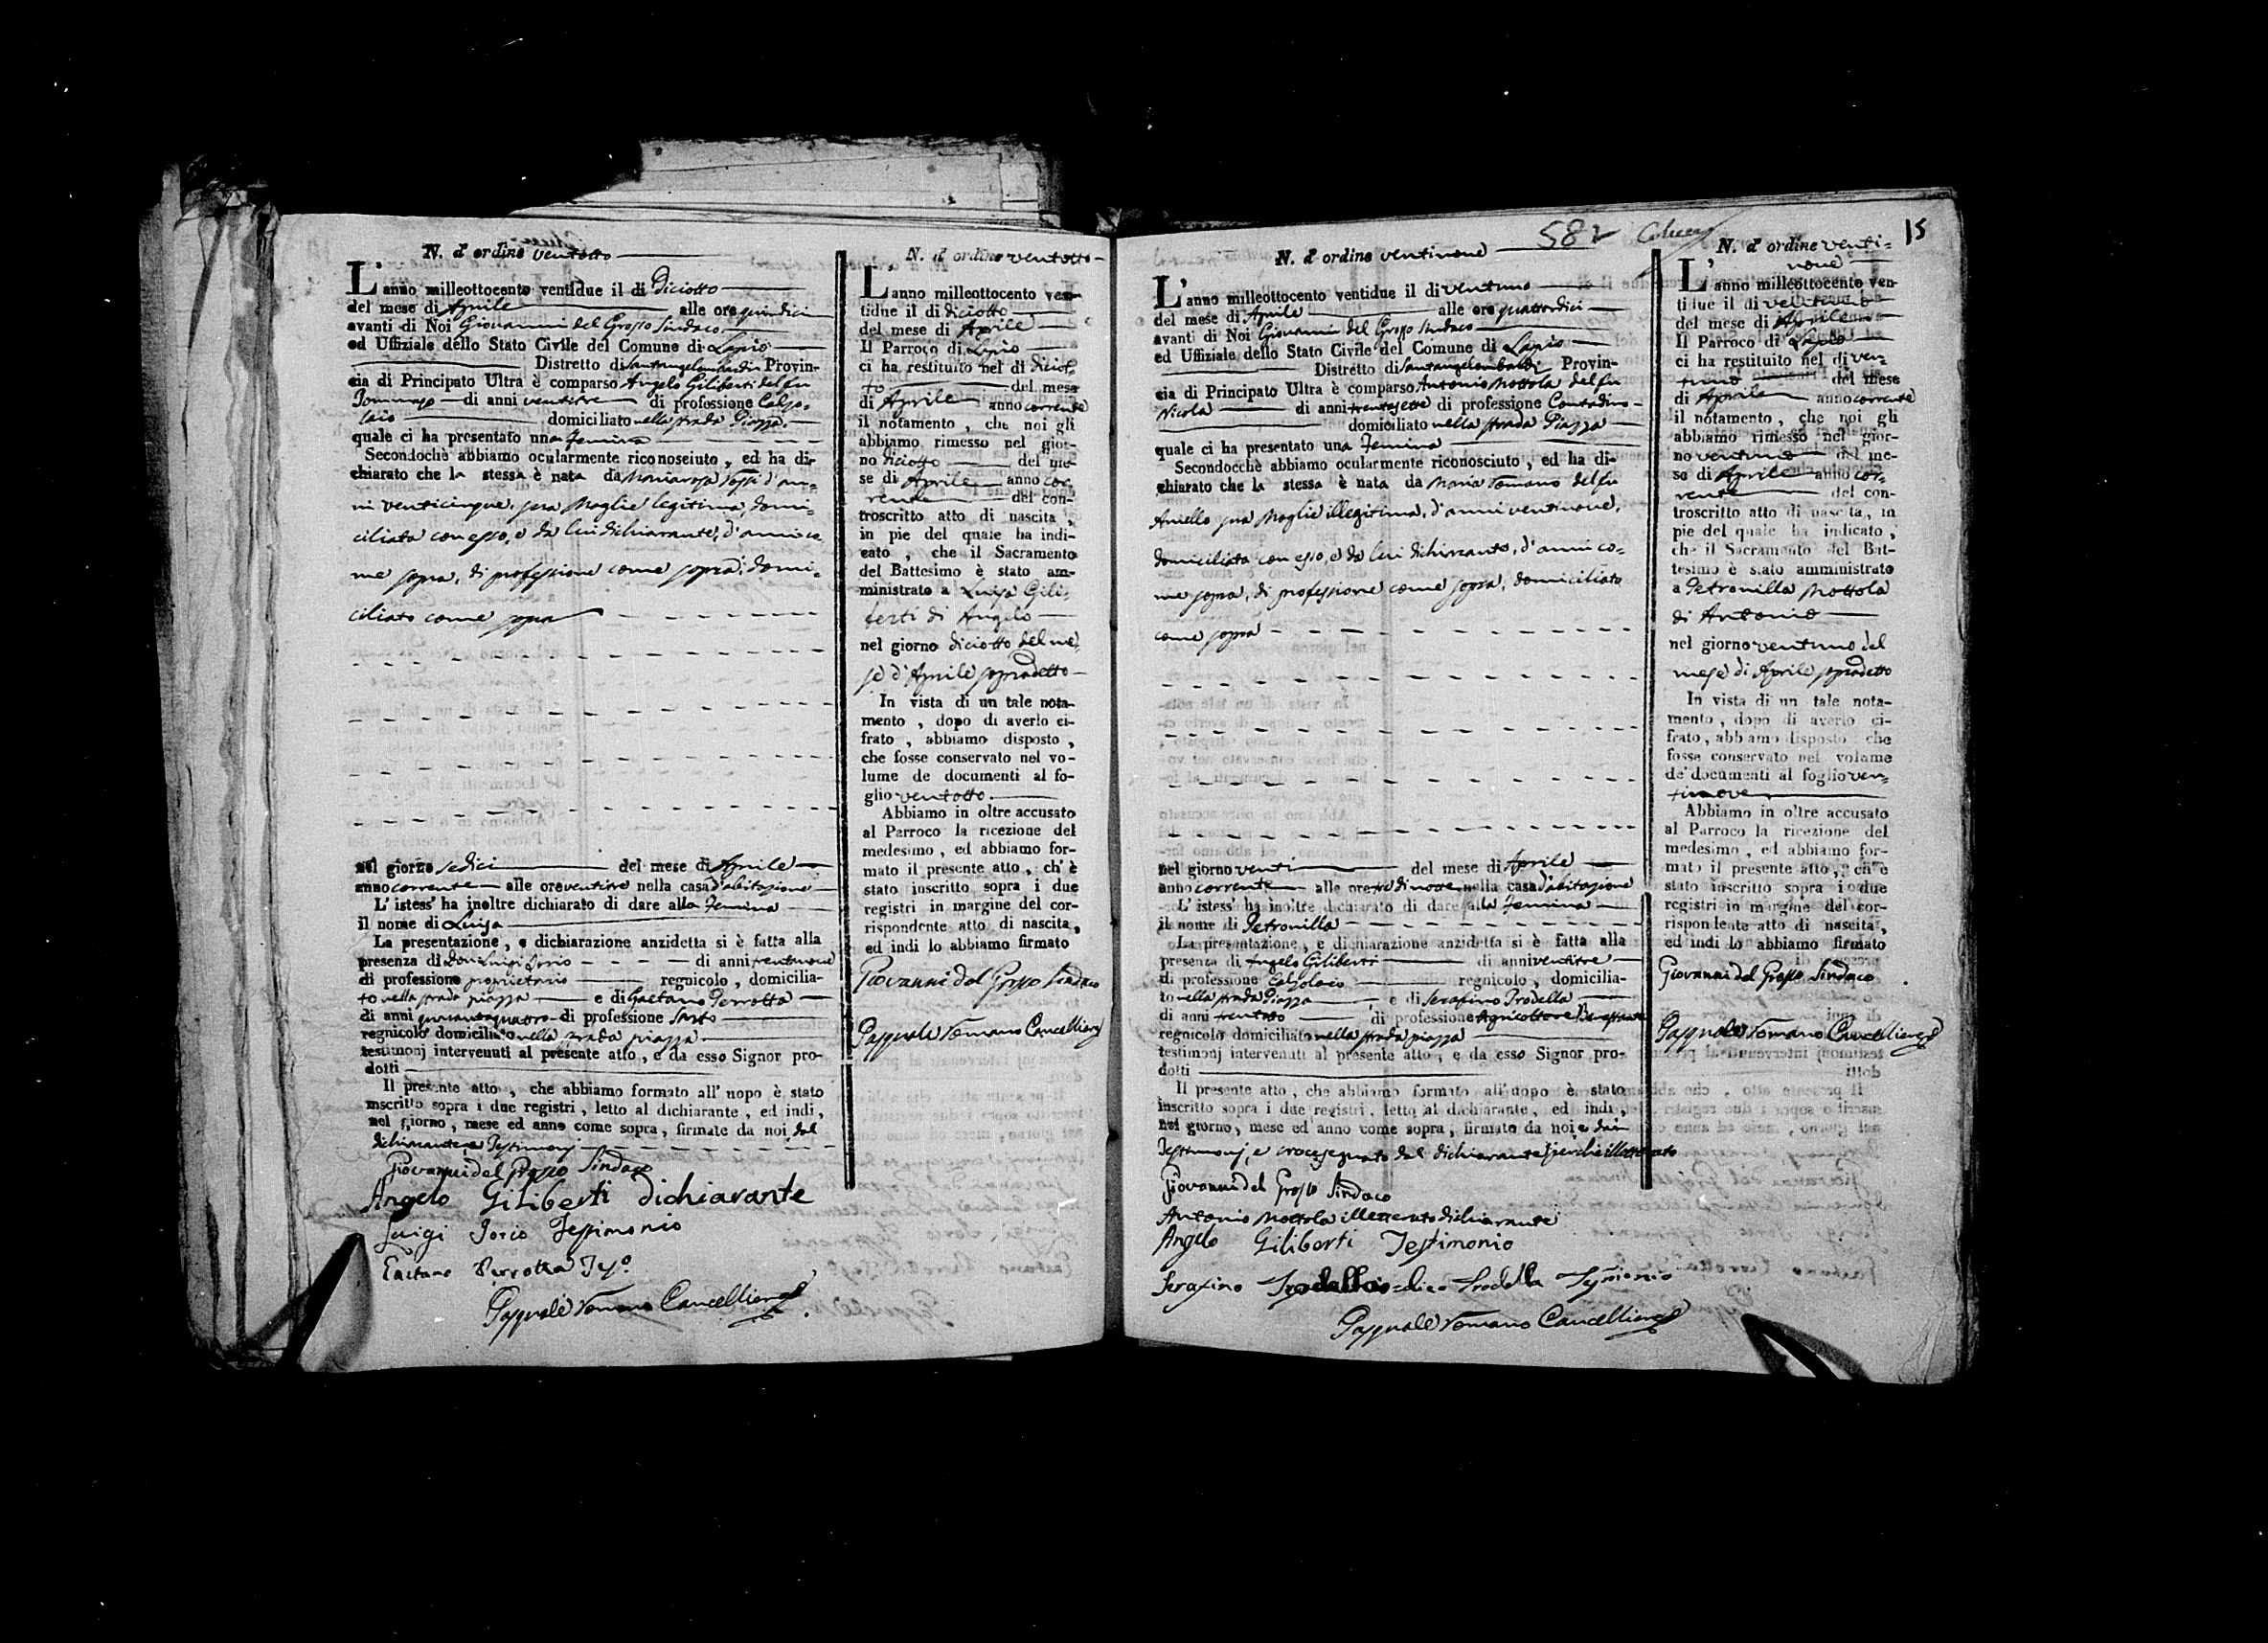 N. d' ordine ventotto
L' anno milleottocento ventidue il di diciotto
del mese di Aprile alle ore quindici
avanti di Noi Giovanni del Grosso Sindaco
ed Uffiziale dello Stato Civile del Comune di Lapio
Distretto di Santangelombardi Provin-
cia di Principato Ultra è comparso Angelo Giliberti del fu
Tommaso di anni ventitre di professione Calzo-
laio domiciliato nella strada Piazza
quale ci ha presentato una femina
Secondochè abbiamo ocularmente riconosciuto, ed ha di-
chiarato che la stessa è nata da Mariarosa d'an-
ni venticinque, sua Moglie legitima, domi-
ciliata con esso, e da lui dichiarante, d'anni co-
me sopra, di professione come sopra, domi-
ciliato come sopra
nel giorno sedici del mese di Aprile
anno corrente alle ore ventitre nella casa d'abitazione
L' istess' ha inoltre dichiarato di dare alla femina
il nome di Luisa
La presentazione, e dichiarazione anzidetta si è fatta alla
presenza di Don Luigi Iorio di anni trentanove
di professione proprietario regnicolo, domicilia-
to nella strada piazza e di Gaetano Perrotta
di anni quarantaquattro di professione Sarto
regnicolo domiciliato nella strada piazza
testimonj intervenuti al presente atto, e da esso Signor pro-
dotti
Il presente atto, che abbiamo formato all' uopo è stato
inscritto sopra i due registri, letto al dichiarante, ed indi,
nel giorno, mese ed anno come sopra, firmate da noi, dal
dichiarante, e Testimonj
Giovanni del Grosso Sindaco
Angelo Giliberti dichiarante
Luigi Iorio Testimonio
Gaetano Perrotta Tesº
Pasquale Romano Cancelliere
N. d' ordine ventotto
L' anno milleottocento ven-
tidue il di diciotto
del mese di Aprile
Il Parroco di Lapio
ci ha restituito nel di diciot-
to del mese
di Aprile anno corrente
il notamento, che noi gli
abbiamo rimesso nel gior-
no diciotto del me-
se di Aprile anno cor-
rente del con-
troscritto atto di nascita,
in pie del quale ha indi-
cato, che il Sacramento
del Battesimo è stato am-
ministrato a Luisa Gili-
berti di Angelo
nel giorno diciotto del me-
se d'Aprile sopradetto
In vista di un tale nota-
mento, dopo di averlo ci-
frato, abbiamo disposto,
che fosse conservato nel vo-
lume de documenti al fo-
glio ventotto
Abbiamo in oltre accusato
al Parroco la ricezione del
medesimo, ed abbiamo for-
mato il presente atto, ch' è
stato inscritto sopra i due
registri in margine del cor-
rispondente atto di nascita,
ed indi lo abbiamo firmato
Giovanni del Grosso Sindaco
Pasquale Romano Cancelliere
582
15
N. d' ordine ventinove
L' anno milleottocento ventidue il di ventuno
del mese di Aprile alle ore quattordici
avanti di Noi Giovanni del Grosso Sindaco
ed Uffiziale dello Stato Civile del Comune di Lapio
Distretto di Santangelombardi Provin-
cia di Principato Ultra è comparso Antonio Mottola del fu
Nicola di anni trentasette di professione Contadino
domiciliato nella strada Piazza
quale ci ha presentato una femina
Secondocchè abbiamo ocularmente riconosciuto, ed ha di-
chiarato che la stessa è nata da Maria Romano del fu
Aniello sua Moglie illegitima, d'anni ventinove,
domiciliata con esso, e da lui dichiarante, d'anni co-
me sopra, di professione come sopra, domiciliato
come sopra
nel giorno venti del mese di Aprile
anno corrente alle ore tre di notte nella casa d'abitazione
L' istess' ha inoltre dichiarato di dare alla femina
il nome di Petronilla
La presentazione, e dichiarazione anzidetta si è fatta alla
presenza di Angelo Giliberti di anni ventitre
di professione Calzolaio regnicolo, domicilia-
to nella strada Piazza, e di Serafino Trodella
di anni trentotto di professione Agricoltore Benestante
regnicolo domiciliato nella strada piazza
testimonj intervenuti al presente atto, e da esso Signor pro-
dotti
Il presente atto, che abbiamo formato all' uopo è stato
inscritto sopra i due registri, letto al dichiarante, ed indi,
nel giorno, mese ed anno come sopra, firmato da noi, e dai
Testimonj, e crocesegnato dal dichiarante perchè illetterato
Giovanni del Grosso Sindaco
Antonio Mottola illetterato dichiarante
Angelo Giliberti Testimonio
Serafino Trodella Testimonio
Pasquale Romano Cancelliere
N. d' ordine venti-
nove
L' anno milleottocento ven-
tidue il di ventuno
del mese di Aprile
Il Parroco di Lapio
ci ha restituito nel di ven-
tuno del mese
di Aprile anno corrente
il notamento, che noi gli
abbiamo rimesso nel gior-
no ventuno del me-
se di Aprile anno cor-
rente del con-
troscritto atto di nascita, in
pie del quale ha indicato,
che il Sacramento del Bat-
tesimo è stato amministrato
a Petronilla Mottola
di Antonio
nel giorno ventuno del
mese di Aprile sopradetto
In vista di un tale nota-
mento, dopo di averlo ci-
frato, abbiamo disposto che
fosse conservato nel volume
de' documenti al foglio ven-
tinove
Abbiamo in oltre accusato
al Parroco la ricezione del
medesimo, ed abbiamo for-
mato il presente atto, ch' è
stato inscritto sopra i due
registri in margine del cor-
rispondente atto di nascita,
ed indi lo abbiamo firmato
Giovanni del Grosso Sindaco
Pasquale Romano Cancelliere